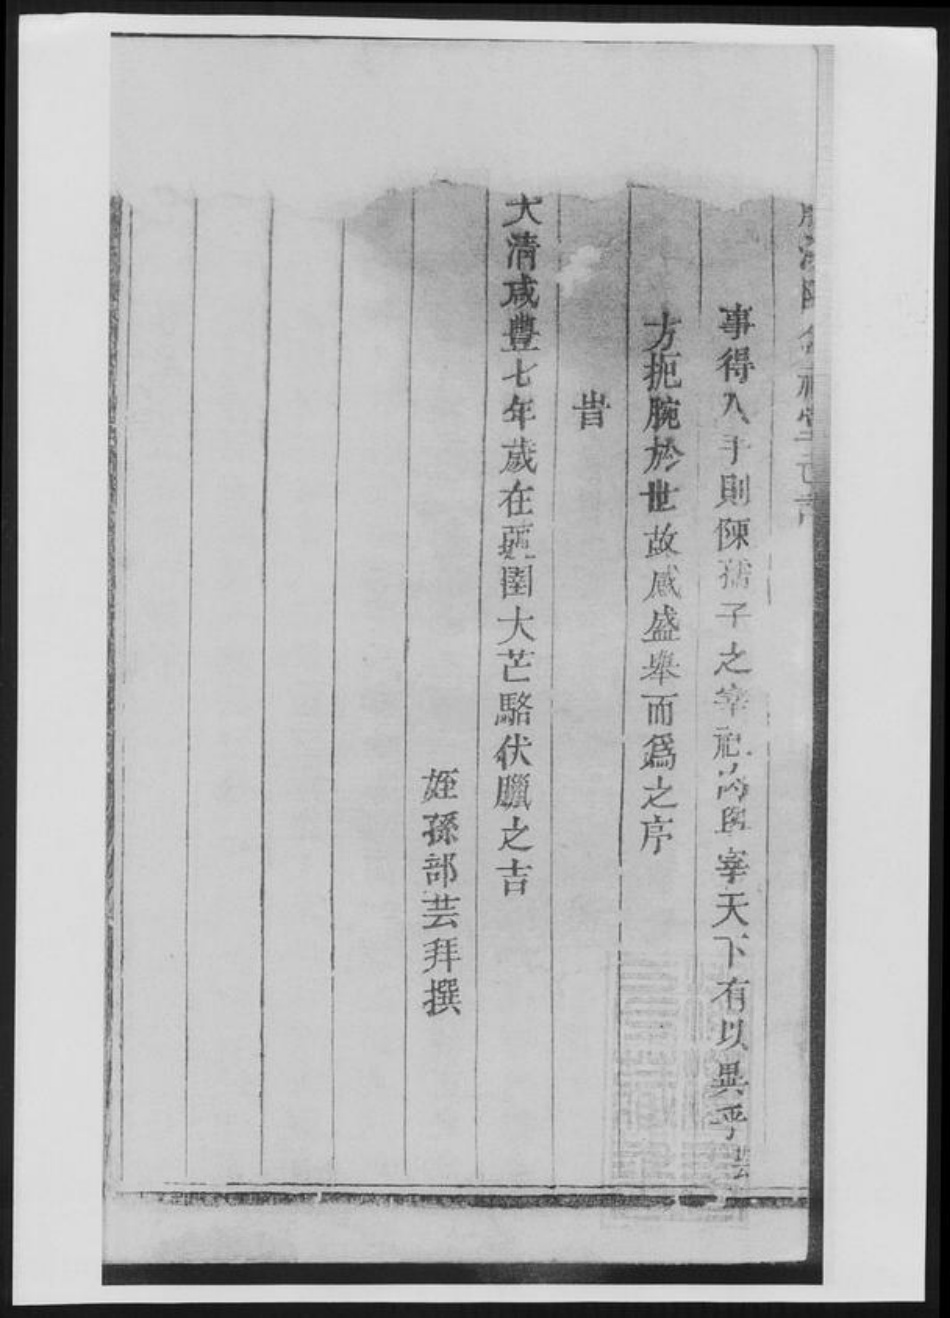 事得入手則陳孺子之宰社內與宰天下有以異乎芸
方扼腕於世故感盛舉而爲之序
旹
大清咸豐七年歲在彊圉大芒駱伏臘之吉
姪孫部芸拜撰